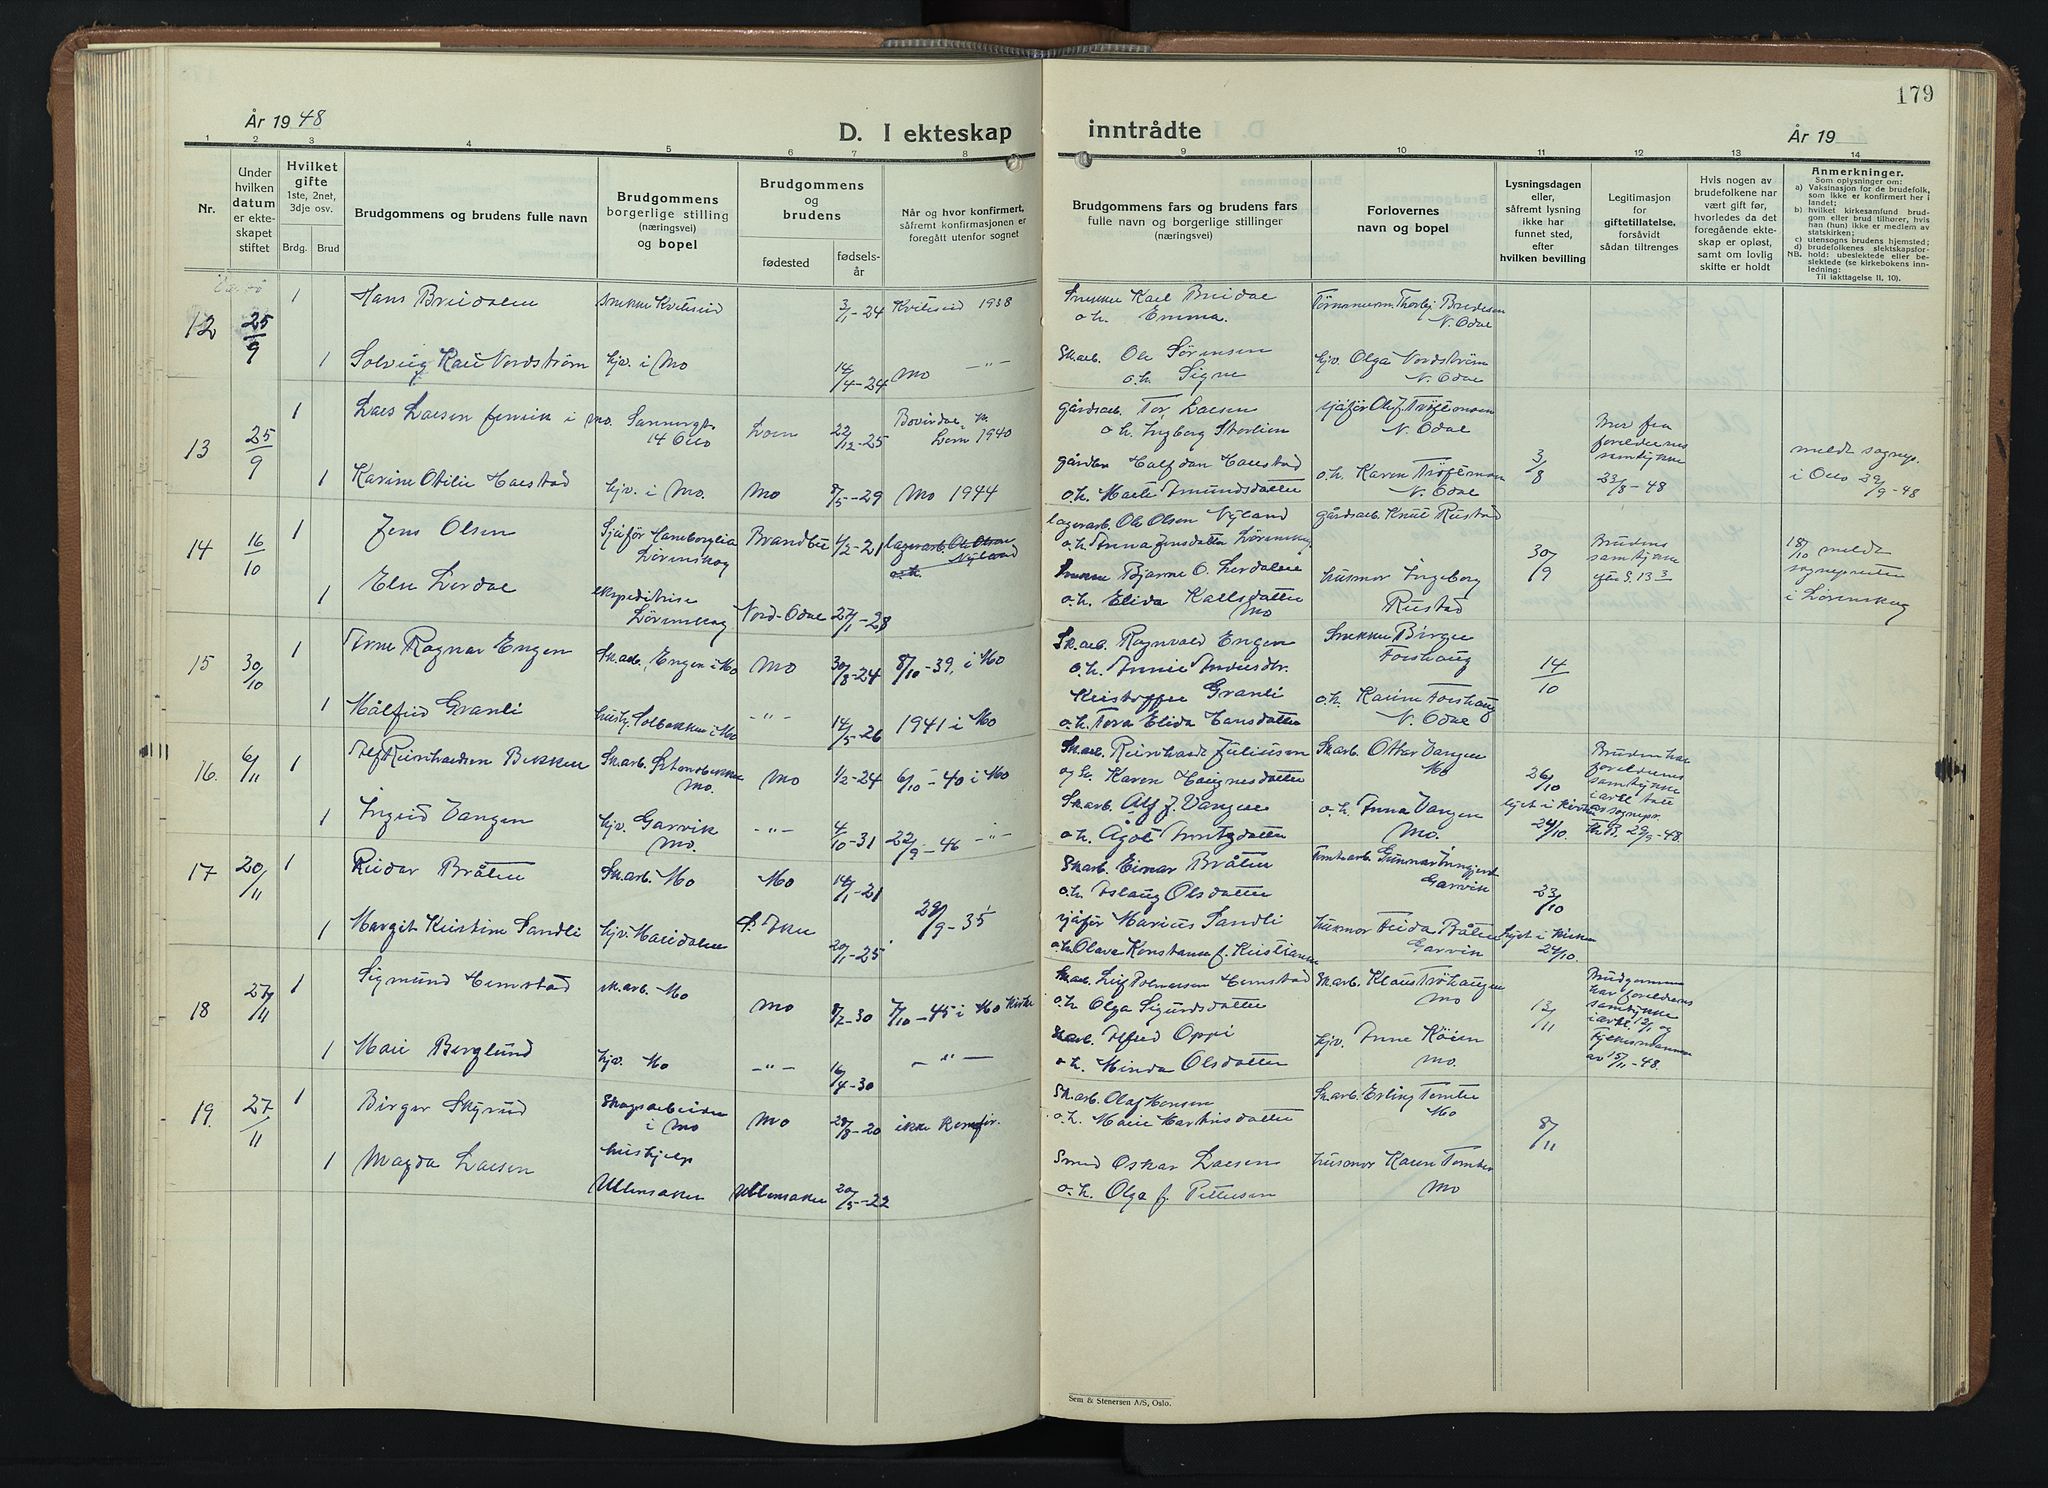 179
År 1948
D. I ekteskap
inntrådte
År 19
1 2 3 4 5 6 7 8 9 10 11 12 13 14
Nr.
Under hvilken datum er ekteskapet stiftet
Hvilket gifte 1ste, 2net, 3dje osv.
Brdg. Brud
Brudgommens og brudens fulle navn
Brudgommens borgerlige stilling (næringsvei) og bopel
Brudgommens og brudens
fødested
fødselsår
Når og hvor konfirmert, såfremt konfirmasjonen er foregått utenfor sognet
Brudgommens fars og brudens fars fulle navn og borgerlige stillinger (næringsvei)
Forlovernes navn og bopel
Lysningsdagen eller, såfremt lysning ikke har funnet sted, efter hvilken bevilling
Legitimasjon for giftetillatelse, forsåvidt sådan tiltrenges
Hvis nogen av brudefolkene har vært gift før, hvorledes da det foregående ekteskap er opløst, samt om lovlig skifte er holdt
Anmerkninger.
Som oplysninger om:
a) Vaksinasjon for de brudefolk, som ikke er konfirmert her i landet;
b) hvilket kirkesamfund brudgom eller brud tilhører, hvis han (hun) ikke er medlem av statskirken;
c) utensogns brudens hjemsted;
d) brudefolkenes slektskapsforhold: ubeslektede eller beslektede (se kirkebokens innledning:
NB.
Til iakttagelse II, 10).
12 25/9 1 Hans Breidalen 3/1-24 Kviteseid 1938
Snekker Karl Breidal
o.h. Emma.
N. Odal
1 Solveig Kari Nordstrøm hjv. i Mo 14/4-24 Mo —"—
Sk.arb. Ole Sørensen
o.h. Signe
hjv. Olga Nordstrøm
N. Odal
13 25/9 1 Lars Larsen
14 Oslo Lom 22/12-25
Lom 1940
gårdsarb. Tor Larsen
o.h. Ingborg Storlien
sjåfør Olaf
N. Odal
3/8
foreldrenes samtykke
23/8-48
meldt sognepr.
i Oslo 29/9-48
1 Karine Otilie Harstad hjv. i Mo. Mo 8/5-29 Mo 1944
gårdbr. Halfdan Harstad
o.h. Marte Amundsdatter
o.h. Karen
N. Odal
14 16/10 1 Jens Olsen
Sjåfør Haneborglia
Lørenskog
Brandbu 1/2-21
lagerarb. Ole Olsen
Nyland
o.h.
lagerarb. Ole Olsen Nyland
o.h. Anna Jensdatter Lørenskog
gårdsarb. Knut Rustad
30/9
Brudens
samtykke
18/10 meldt
sognepresten
i Lørenskog
1 Else Lerdal
ekspeditrise
Lørenskog
Nord-Odal 27/1-28
Snekker Bjarne O. Lerdalen
o.h. Elida Karlsdatter
Mo
husmor Ingeborg
Rustad
15 30/10 1 Arne Ragnar Engen Sk.arb., Engen i Mo Mo 30/8-24 8/10-39, i Mo
Sk.arb. Ragnvald Engen
o.h. Annie
Snekker Birger
Forshaug
14/10
1 Målfrid Granli Solbakken i Mo —"— 14/5-26 1941 i Mo
Kristoffer Granli
o.h. Tora Elida Hansdatter
o.h. Karine Forshaug
N. Odal
16. 6/11 1 Alf Reinhardsen Bekken
Sk.arb.
Mo.
Mo 1/2-24 6/10-40 i Mo
Sk.arb. Reinhardt Juliussen
og h. Karen Magnesdatter
Sk.arb. Ottar Vangen
Mo
26/10
lyst i kirken
24/10.
Bruden har
foreldrenes
samtykke
29/9-48.
1 Ingrid Vangen
hjv. Garvik
Mo.
—"— 4/10-31 22/9-46 —"—
Sk.arb. Alf J. Vangen
o.h. Ågot
o.h. Anna Vangen
Mo.
17 20/11 1 Reidar Bråten Sk.arb. Mo Mo 14/1-21
Sk.arb. Einar Bråten
o.h. Aslaug Olsdatter
Tomtearb. Gunnar
Garvik
23/10
1 Margit Kristine Sandli hjv. Mariedalen 20/1-25 29/9-35
sjåfør Marius Sandli
o.h. Olava Konstanse f. Kristiansen
husmor Frida Bråten
Garvik
lyst i kirken
24/10.
18 27/11 1 Sigmund Hemstad sk.arb. Mo Mo 8/7-30 7/10-45 i Mo kirke
Sk.arb. Leif Hemstad
o.h. Olga Sigurdsdatter
Sk.arb. Klaus Trøhaugen
Mo
13/11
Brudgommen
har foreldrenes
samtykke
i arkl 12/1 og
Fylkesmannen
av 15/11-48.
1 Mari Berglund hjv. Mo —"— 16/4-30 —"—
Sk.arb. Alfred Oppi
o.h. Minda Olsdatter
hjv. Anne Køien
Mo.
19. 27/11 1 Birger Skyrud
Skogsarbeider
i Mo
Mo 28/8-20 ikke konfir.
Sk.arb. Olaf Hansen
o.h. Marie Martinsdatter
Sk.arb. Erling Tomter
Mo
8/11
1 Magda Larsen
hushjelp
Ullensaker Ullensaker 20/5-22
Smed Oskar Larsen
o.h. Olga f. Pettersen
husmor Karen Tomter
Mo
Sem & Stenersen A/S, Oslo.